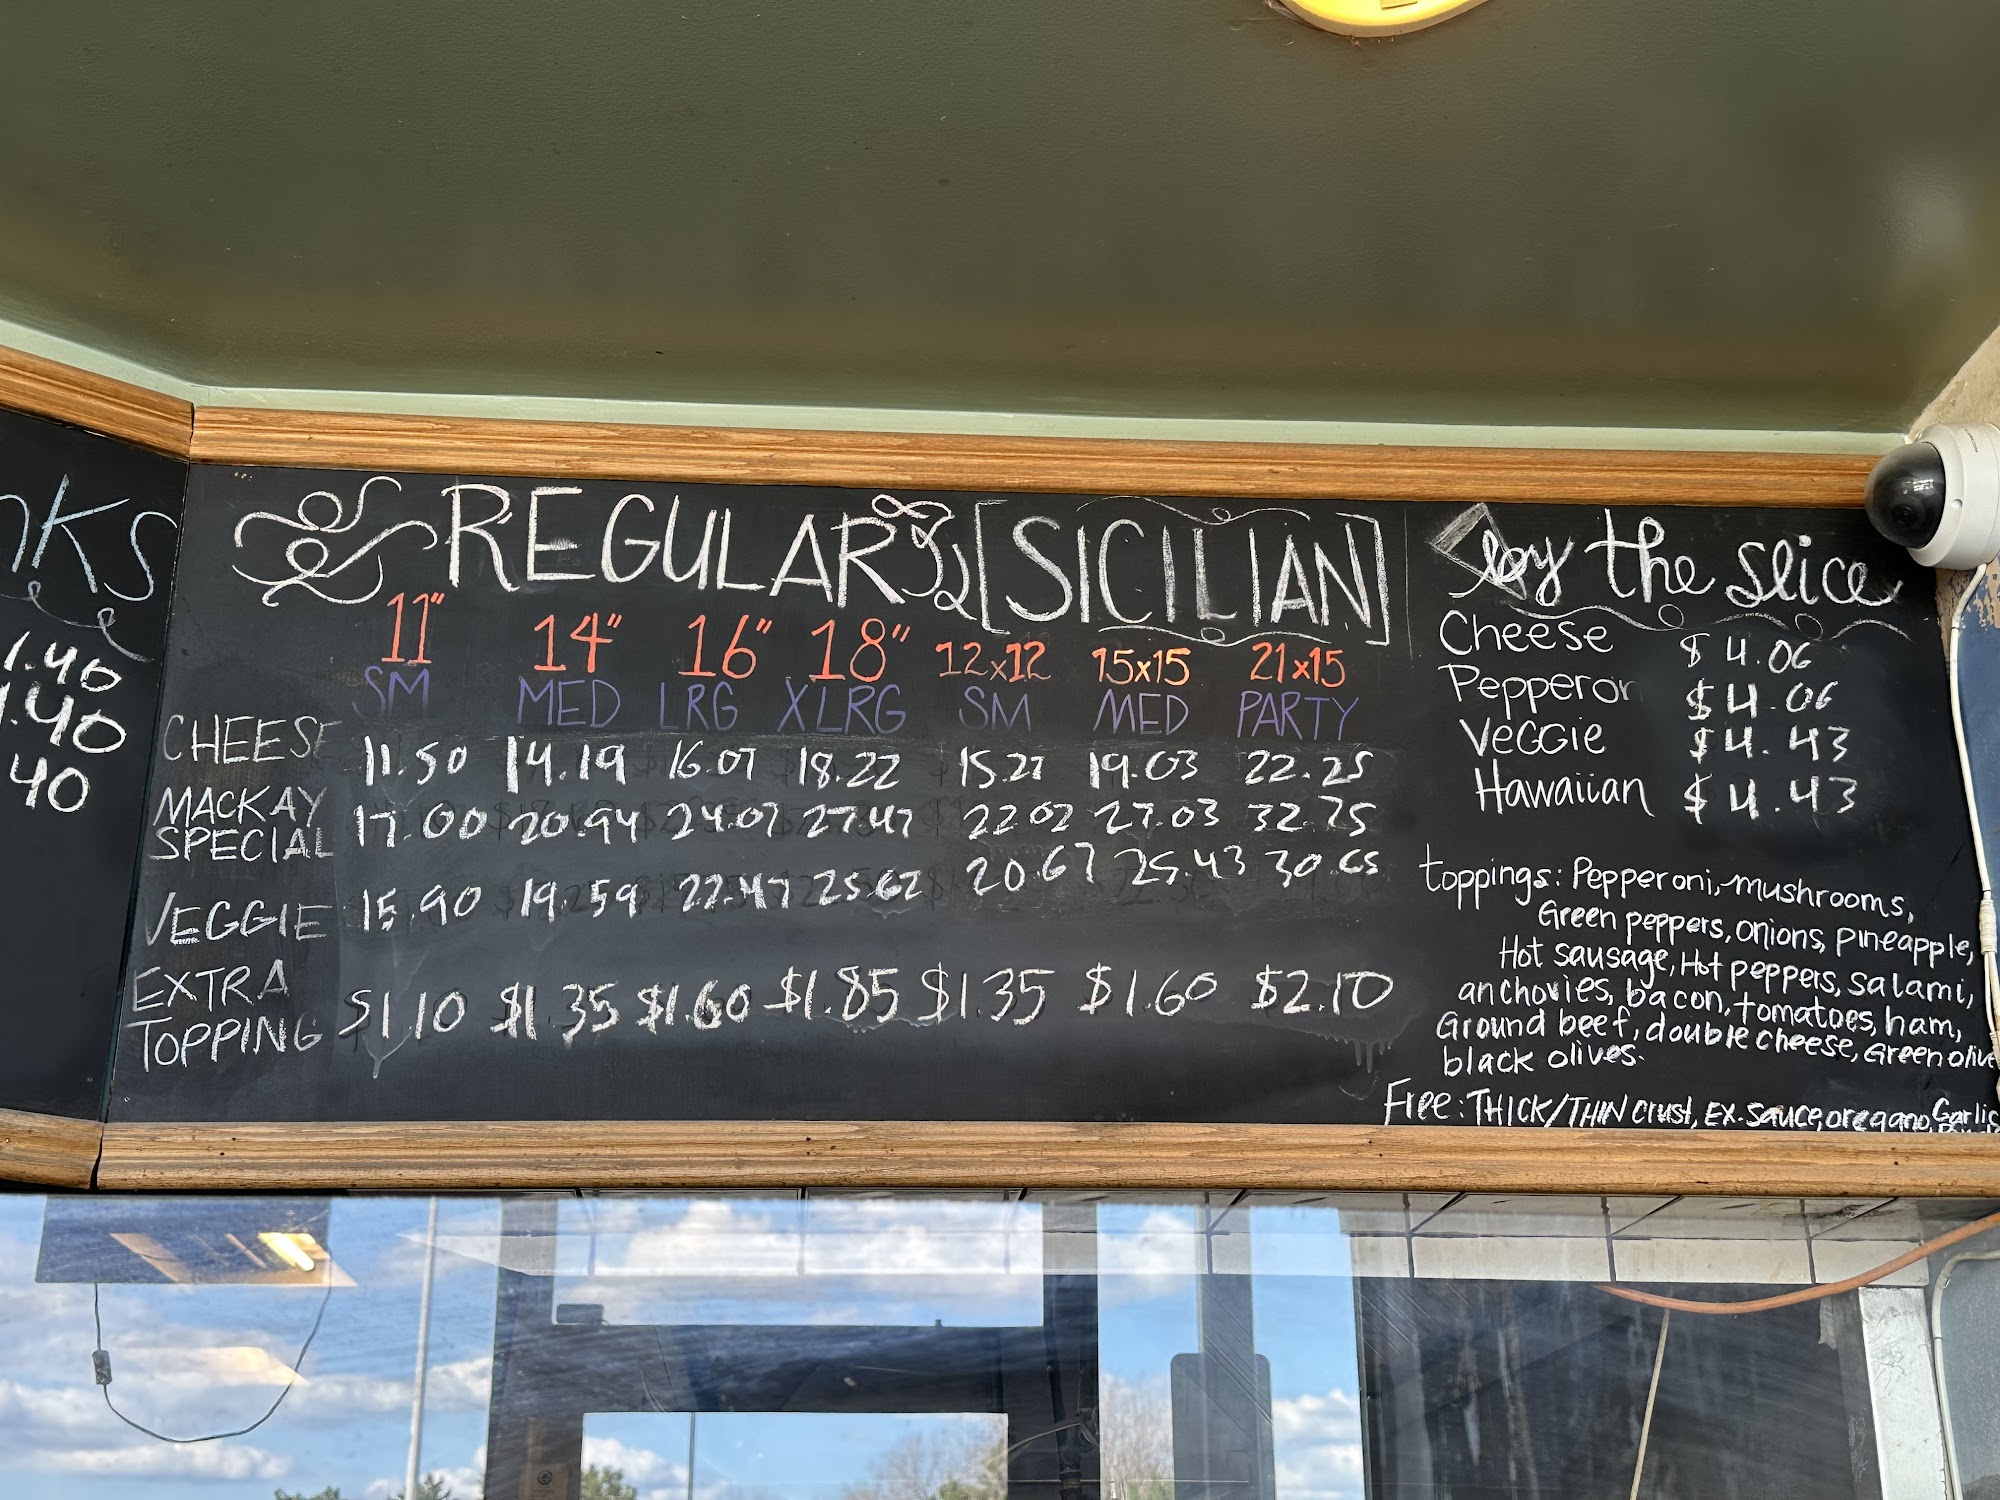 NKS
1.40
1.40
40
REGULAR [SICILIAN]
11" 14" 16" 18" 12x12 15x15 21x15
SM MED LRG XLRG SM MED PARTY
CHEESE 11.50 14.19 16.07 18.22 15.27 19.03 22.25
MACKAY
SPECIAL 17.00 20.94 24.07 27.47 22.02 27.03 32.75
VEGGIE 15.90 19.59 22.47 25.62 20.67 25.43 30.65
EXTRA
TOPPING $1.10 $1.35 $1.60 $1.85 $1.35 $1.60 $2.10
by the slice
Cheese $4.06
Pepperoni $4.06
Veggie $4.43
Hawaiian $4.43
toppings: Pepperoni, mushrooms,
Green peppers, onions, pineapple,
Hot sausage, Hot peppers, salami,
anchovies, bacon, tomatoes, ham,
Ground beef, double cheese, Green olive
black olives.
Free: THICK/THIN crust, EX. sauce, oregano, Garlic